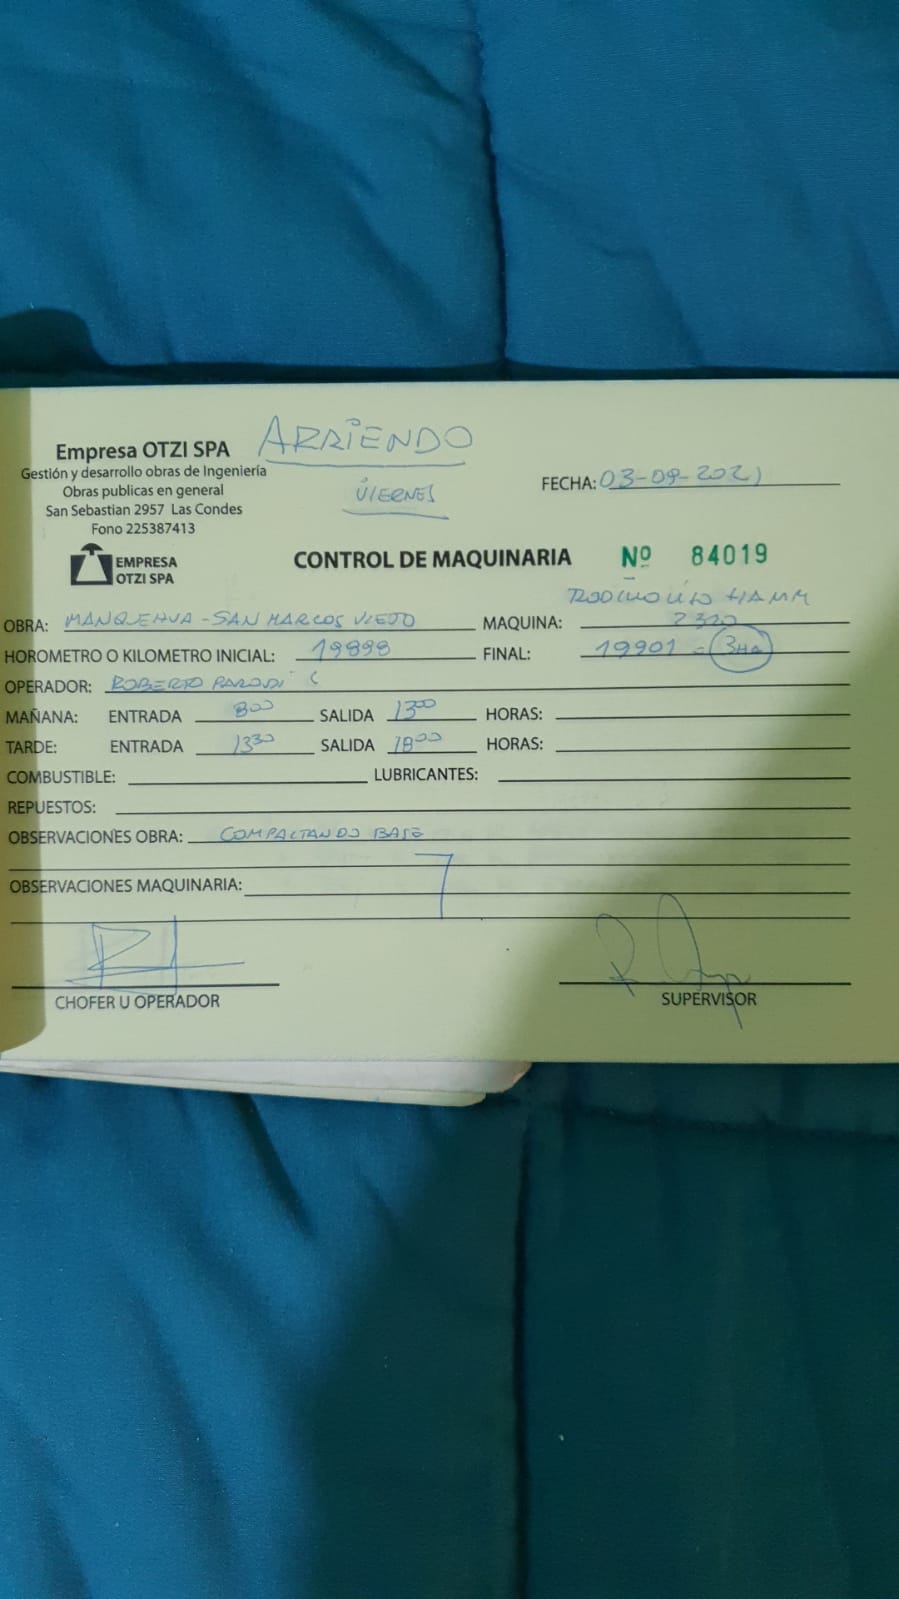 Empresa OTZI SPA
Gestión y desarrollo obras de Ingeniería
Obras publicas en general
San Sebastian 2957 Las Condes
Fono 225387413
EMPRESA
OTZI SPA
ARRIENDO
VIERNES
FECHA: 03-09-2021
CONTROL DE MAQUINARIA Nº 84019
OBRA: MANQUEHUA - SAN MARCOS VIEJO MAQUINA: HAMM
2320
HOROMETRO O KILOMETRO INICIAL: 19898 FINAL: 19901 =
OPERADOR: ROBERTO PARODI C
MAÑANA: ENTRADA 800 SALIDA 1300 HORAS:
TARDE: ENTRADA 1330 SALIDA 1800 HORAS:
COMBUSTIBLE: LUBRICANTES:
REPUESTOS:
OBSERVACIONES OBRA: COMPACTANDO BASE
OBSERVACIONES MAQUINARIA:
CHOFER U OPERADOR SUPERVISOR